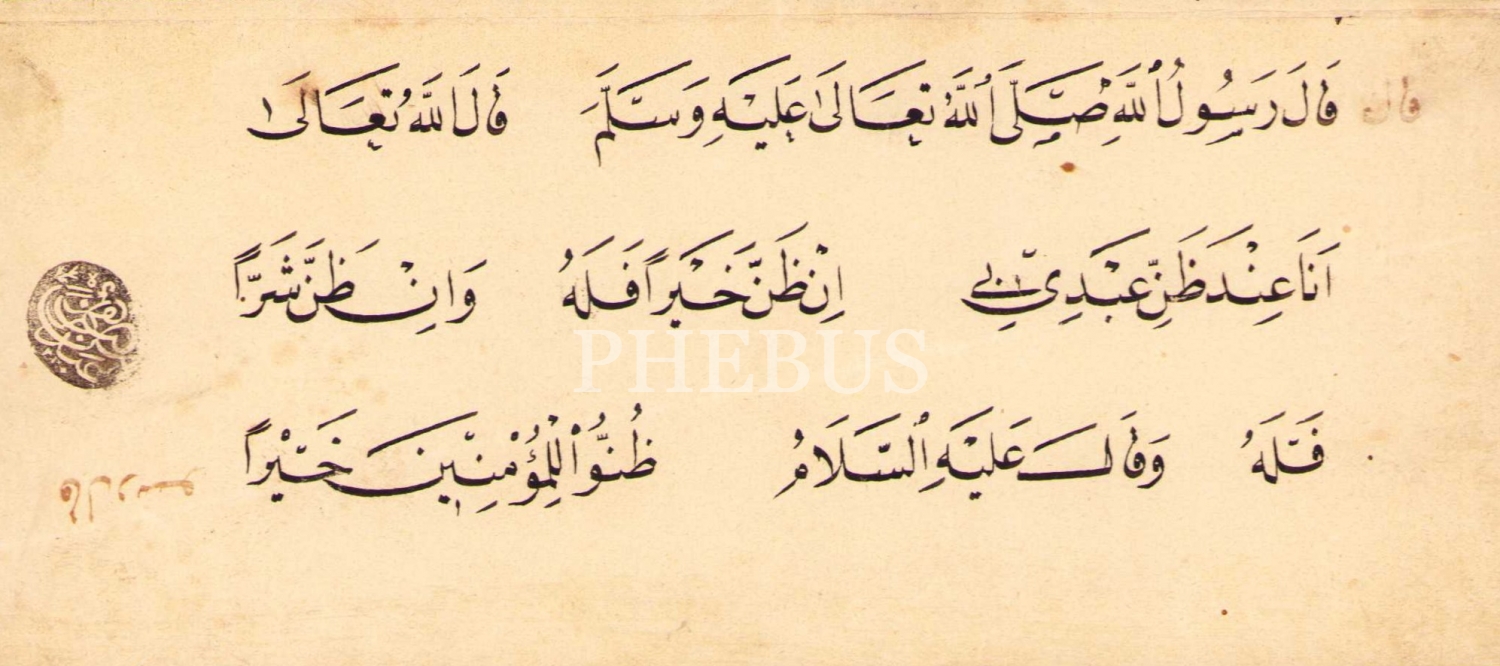 قَالَ رَسُولُ ٱللَّهِ صَلَّى ٱللَّهُ تَعَالَى عَلَيْهِ وَسَلَّمَ قَالَ اللَّهُ تَعَالَى
اَنَا عِنْدَ ظَنِّ عَبْدِي بِي اِنْ ظَنَّ خَيْراً فَلَهُ وَاِنْ ظَنَّ شَرّاً
PHEBUS
فَلَهُ وَقَالَ عَلَيْهِ ٱلسَّلَامُ ظُنُّوا لِلْمُؤْمِنِينَ خَيْراً